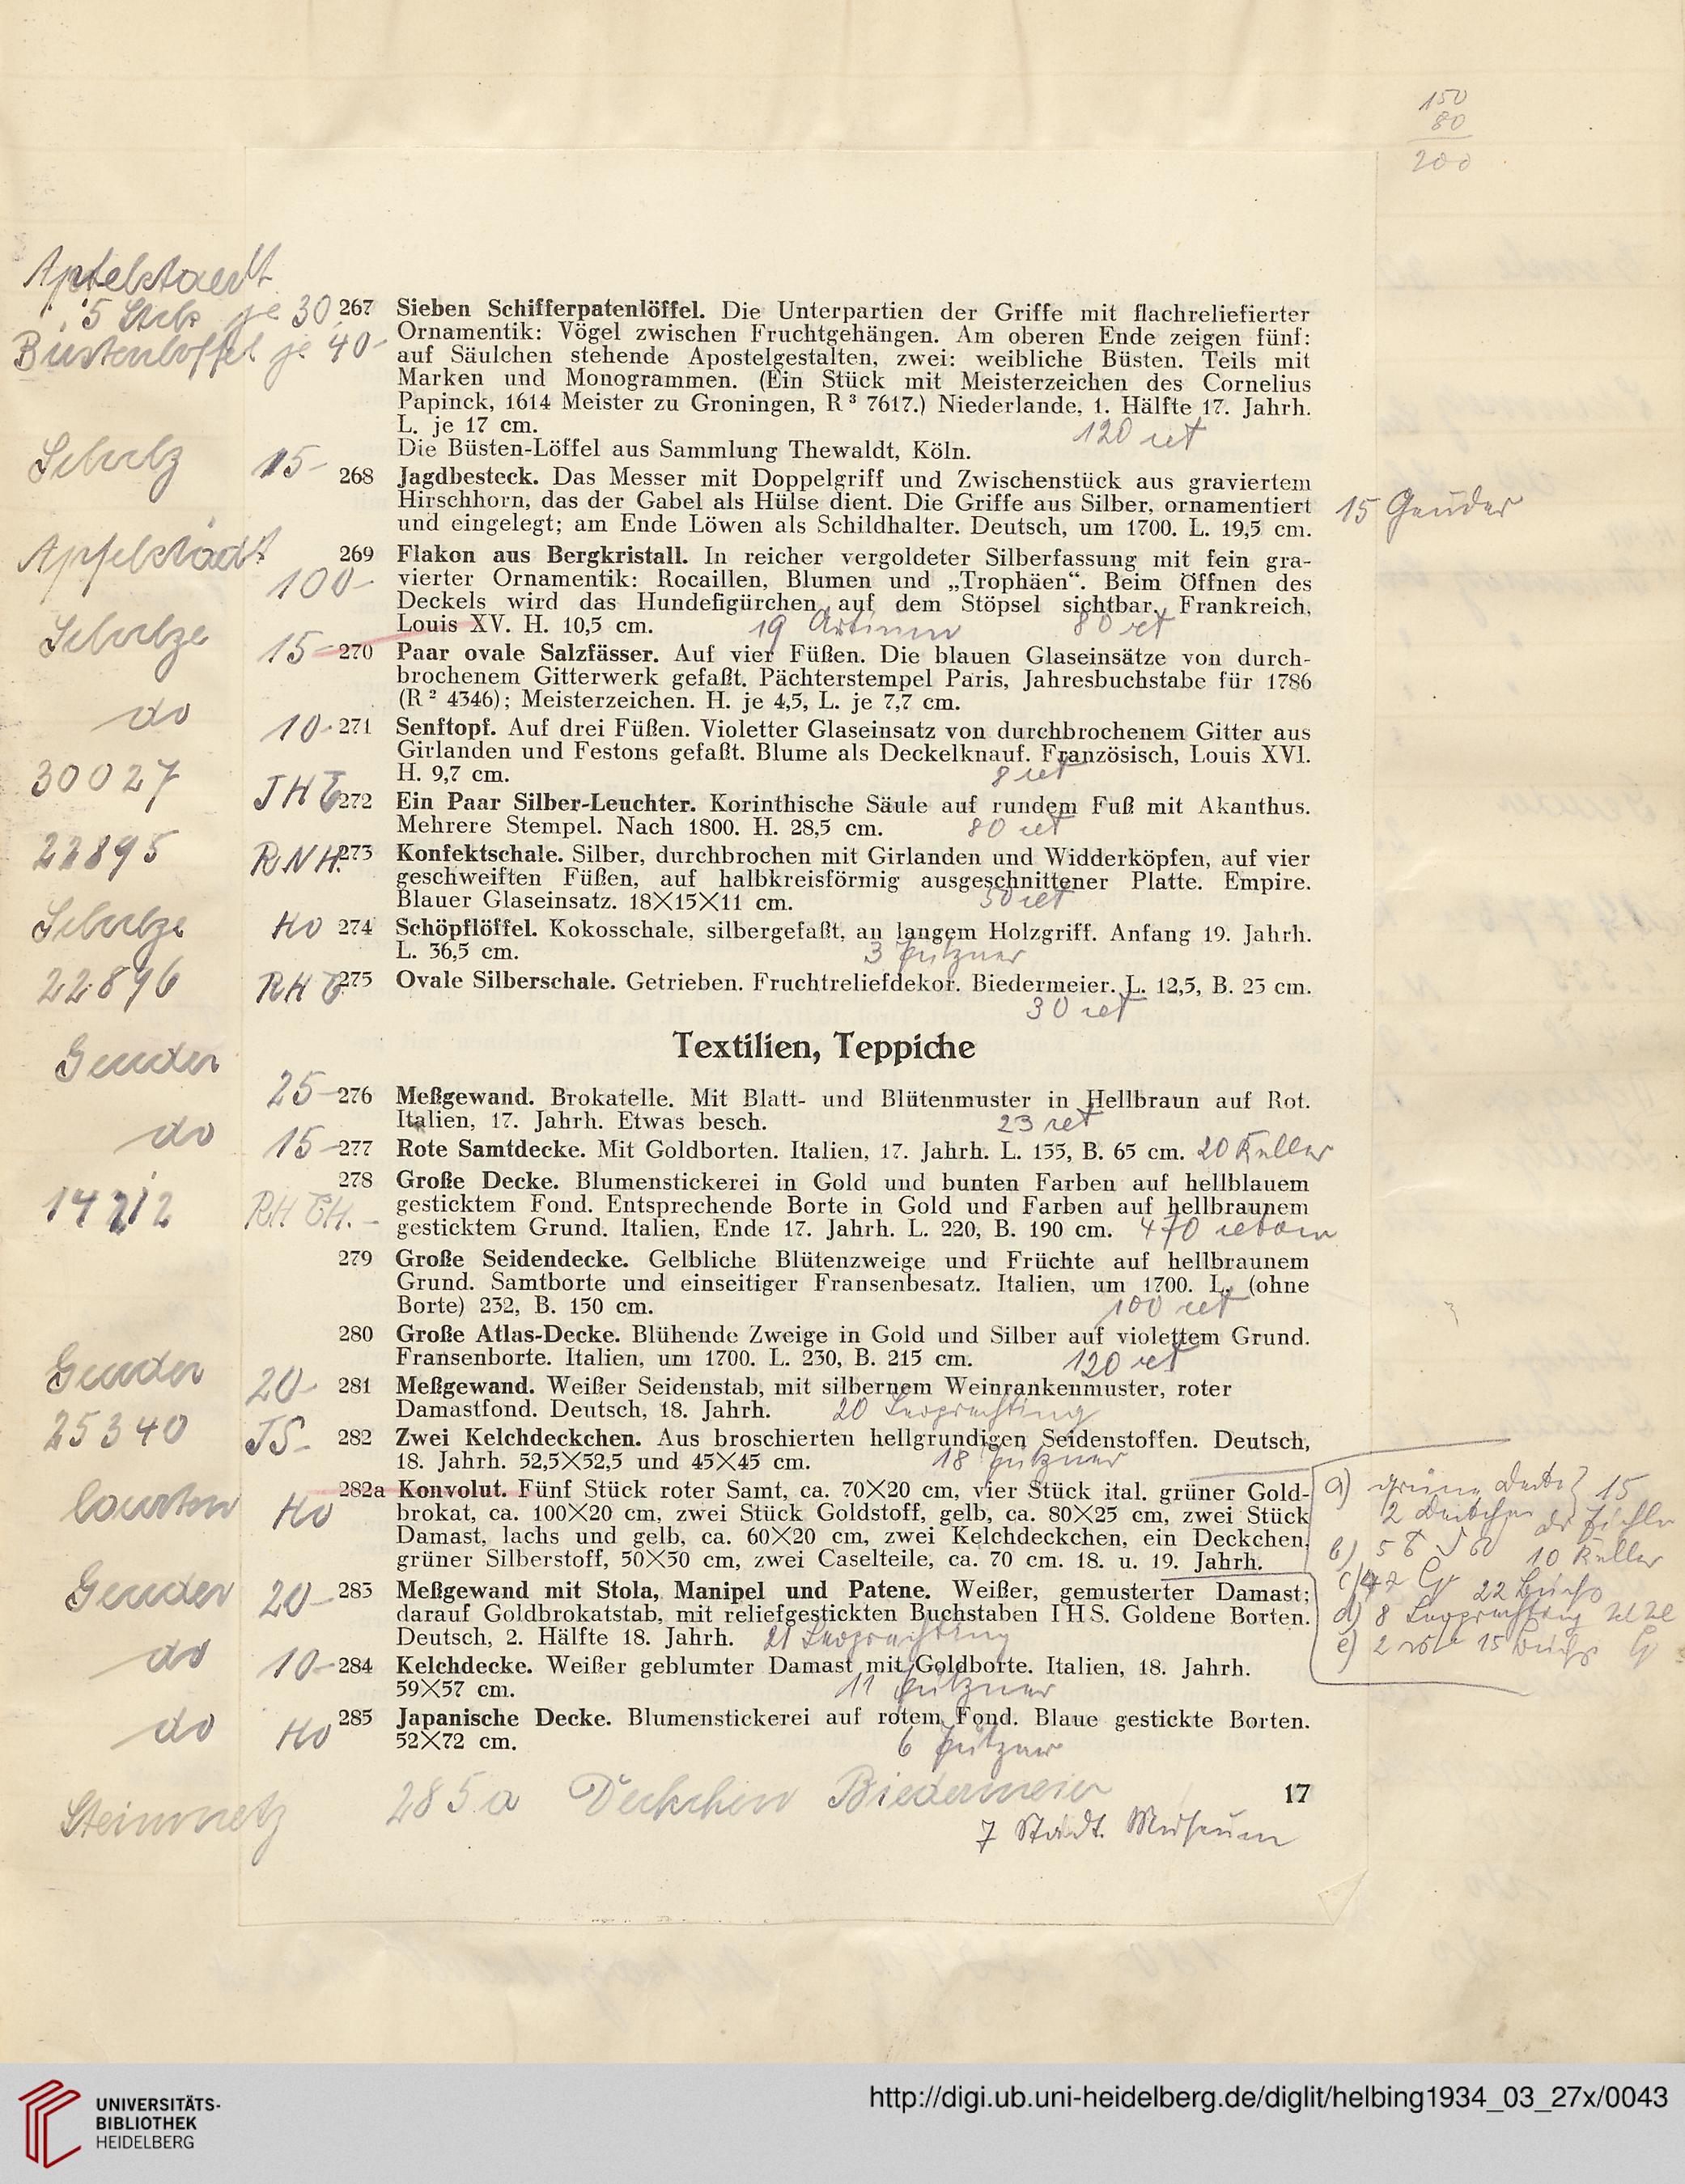 150
80
200
Apfelstaedt
5 Stck je 30
Büstenlöffel je 40-
267 Sieben Schifferpatenlöffel. Die Unterpartien der Griffe mit flachreliefierter
Ornamentik: Vögel zwischen Fruchtgehängen. Am oberen Ende zeigen fünf:
auf Säulchen stehende Apostelgestalten, zwei: weibliche Büsten. Teils mit
Marken und Monogrammen. (Ein Stück mit Meisterzeichen des Cornelius
Papinck, 1614 Meister zu Groningen, R³ 7617.) Niederlande, 1. Hälfte 17. Jahrh.
L. je 17 cm. 120 ret
Die Büsten-Löffel aus Sammlung Thewaldt, Köln.
15-
268 Jagdbesteck. Das Messer mit Doppelgriff und Zwischenstück aus graviertem
Hirschhorn, das der Gabel als Hülse dient. Die Griffe aus Silber, ornamentiert
und eingelegt; am Ende Löwen als Schildhalter. Deutsch, um 1700. L. 19,5 cm.
15 Geuder
Apfelstädt
100-
269 Flakon aus Bergkristall. In reicher vergoldeter Silberfassung mit fein gra-
vierter Ornamentik: Rocaillen, Blumen und „Trophäen“. Beim Öffnen des
Deckels wird das Hundefigürchen auf dem Stöpsel sichtbar. Frankreich,
Louis XV. H. 10,5 cm. 80 ret
19
Schulze 15-
270 Paar ovale Salzfässer. Auf vier Füßen. Die blauen Glaseinsätze von durch-
brochenem Gitterwerk gefaßt. Pächterstempel Paris, Jahresbuchstabe für 1786
(R² 4346); Meisterzeichen. H. je 4,5, L. je 7,7 cm.
do 10-
271 Senftopf. Auf drei Füßen. Violetter Glaseinsatz von durchbrochenem Gitter aus
Girlanden und Festons gefaßt. Blume als Deckelknauf. Französisch, Louis XVI.
H. 9,7 cm. 8 ret
30027
272 Ein Paar Silber-Leuchter. Korinthische Säule auf rundem Fuß mit Akanthus.
Mehrere Stempel. Nach 1800. H. 28,5 cm. 80 ret
22895 RNH.
273 Konfektschale. Silber, durchbrochen mit Girlanden und Widderköpfen, auf vier
geschweiften Füßen, auf halbkreisförmig ausgeschnittener Platte. Empire.
Blauer Glaseinsatz. 18×15×11 cm. 50 ret
Schulze Ho
274 Schöpflöffel. Kokosschale, silbergefaßt, an langem Holzgriff. Anfang 19. Jahrh.
L. 36,5 cm. 3 Pützner
22896
275 Ovale Silberschale. Getrieben. Fruchtreliefdekor. Biedermeier. L. 12,5, B. 23 cm.
30 ret
Textilien, Teppiche
Geuder 25-
276 Meßgewand. Brokatelle. Mit Blatt- und Blütenmuster in Hellbraun auf Rot.
Italien, 17. Jahrh. Etwas besch. 23 ret
do 15-
277 Rote Samtdecke. Mit Goldborten. Italien, 17. Jahrh. L. 155, B. 65 cm. 20 Keller
14212
278 Große Decke. Blumenstickerei in Gold und bunten Farben auf hellblauem
gesticktem Fond. Entsprechende Borte in Gold und Farben auf hellbraunem
gesticktem Grund. Italien, Ende 17. Jahrh. L. 220, B. 190 cm. 470
279 Große Seidendecke. Gelbliche Blütenzweige und Früchte auf hellbraunem
Grund. Samtborte und einseitiger Fransenbesatz. Italien, um 1700. L. (ohne
Borte) 232, B. 150 cm. 100 ret
280 Große Atlas-Decke. Blühende Zweige in Gold und Silber auf violettem Grund.
Fransenborte. Italien, um 1700. L. 230, B. 215 cm. 120 ret
Geuder 20-
281 Meßgewand. Weißer Seidenstab, mit silbernem Weinrankenmuster, roter
Damastfond. Deutsch, 18. Jahrh. 20 Leoprechting
25340 JS-
282 Zwei Kelchdeckchen. Aus broschierten hellgrundigen Seidenstoffen. Deutsch,
18. Jahrh. 52,5×52,5 und 45×45 cm. 18 Pützner
Ho
282a Konvolut. Fünf Stück roter Samt, ca. 70×20 cm, vier Stück ital. grüner Gold-
brokat, ca. 100×20 cm, zwei Stück Goldstoff, gelb, ca. 80×25 cm, zwei Stück
Damast, lachs und gelb, ca. 60×20 cm, zwei Kelchdeckchen, ein Deckchen,
grüner Silberstoff, 50×50 cm, zwei Caselteile, ca. 70 cm. 18. u. 19. Jahrh.
a) grüne 15
2
b) 10 Keller
c) 22
d) 8 Leoprechting
e) 2 15
Geuder 20-
283 Meßgewand mit Stola, Manipel und Patene. Weißer, gemusterter Damast;
darauf Goldbrokatstab, mit reliefgestickten Buchstaben IHS. Goldene Borten.
Deutsch, 2. Hälfte 18. Jahrh. 21 Leoprechting
do 10-
284 Kelchdecke. Weißer geblumter Damast mit Goldborte. Italien, 18. Jahrh.
59×57 cm. 11 Pützner
do Ho
285 Japanische Decke. Blumenstickerei auf rotem Fond. Blaue gestickte Borten.
52×72 cm. 6 Pützner
Steinmetz 285a Deckchen Biedermeier
17
7 Städt. Museum
UNIVERSITÄTS-
BIBLIOTHEK
HEIDELBERG
http://digi.ub.uni-heidelberg.de/diglit/helbing1934_03_27x/0043